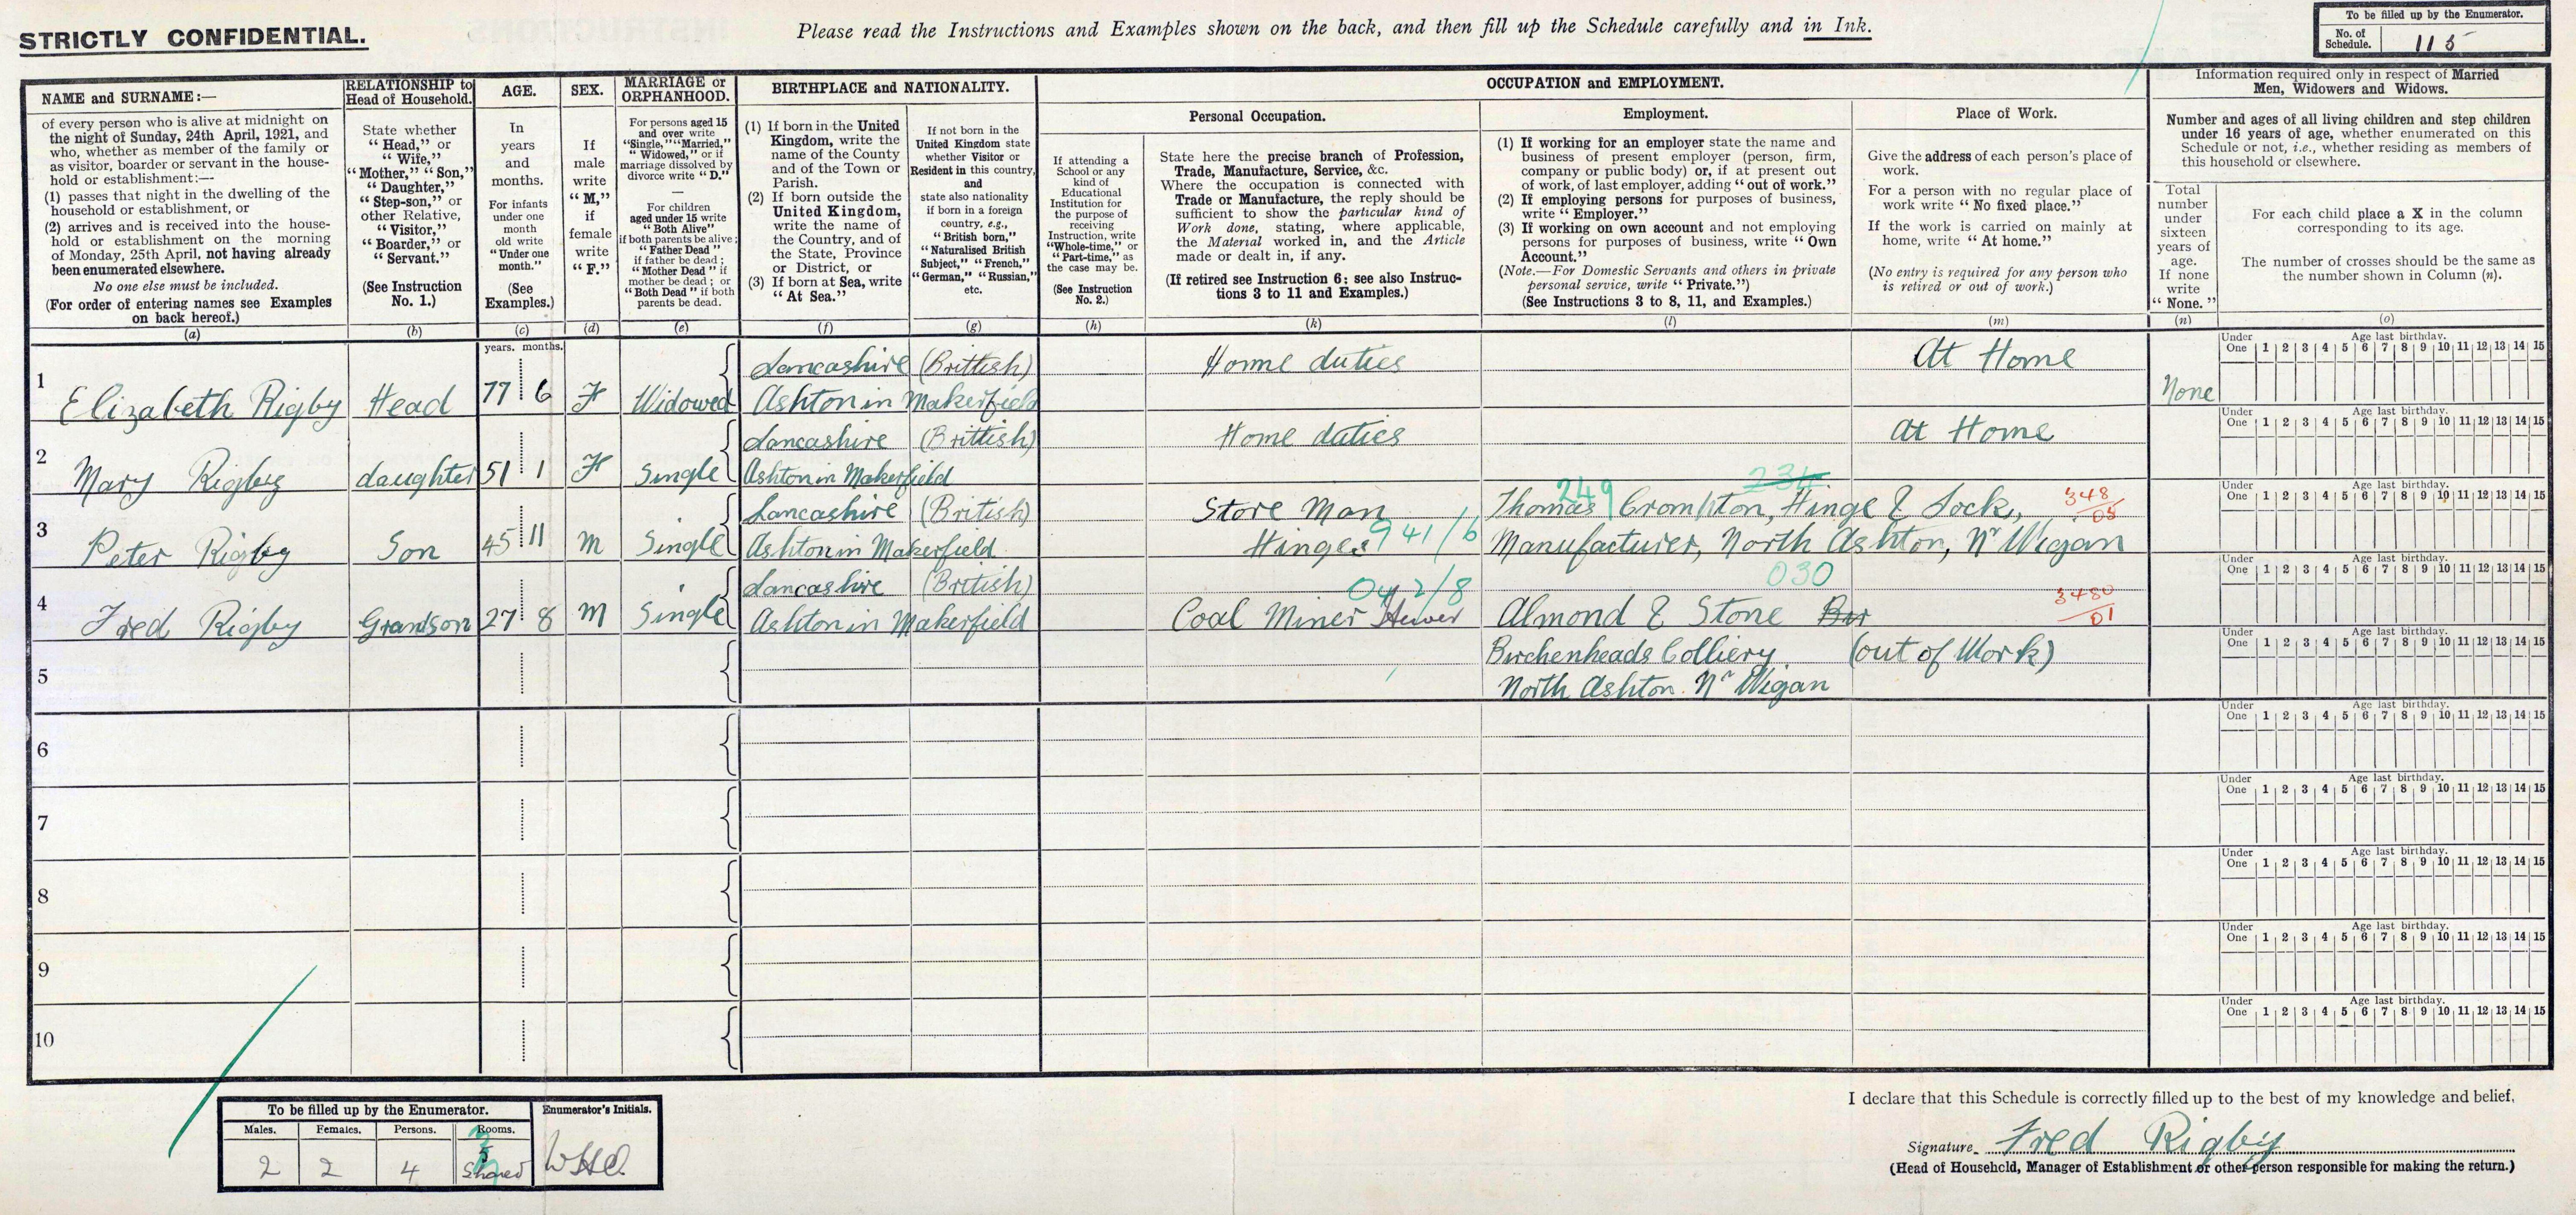 STRICTLY CONFIDENTIAL.
Please read the Instructions and Examples shown on the back, and then fill up the Schedule carefully and in Ink.
To be filled up by the Enumerator.
No. of Schedule. 115
NAME and SURNAME:—
of every person who is alive at midnight on
the night of Sunday, 24th April, 1921, and
who, whether as member of the family or
as visitor, boarder or servant in the house-
hold or establishment:—
(1) passes that night in the dwelling of the
household or establishment, or
(2) arrives and is received into the house-
hold or establishment on the morning
of Monday, 25th April, not having already
been enumerated elsewhere.
No one else must be included.
(For order of entering names see Examples
on back hereof.)
(a)
RELATIONSHIP to
Head of Household.
State whether
"Head," or
"Wife,"
"Mother," "Son,"
"Daughter,"
"Step-son," or
other Relative,
"Visitor,"
"Boarder," or
"Servant."
(See Instruction
No. 1.)
(b)
AGE.
In
years
and
months.
For infants
under one
month
old write
"Under one
month."
(See
Examples.)
(c)
SEX.
If
male
write
"M,"
if
female
write
"F."
(d)
MARRIAGE or
ORPHANHOOD.
For persons aged 15
and over write
"Single," "Married,"
"Widowed," or if
marriage dissolved by
divorce write "D."
—
For children
aged under 15 write
"Both Alive"
if both parents be alive;
"Father Dead"
if father be dead;
"Mother Dead" if
mother be dead; or
"Both Dead" if both
parents be dead.
(e)
BIRTHPLACE and NATIONALITY.
(1) If born in the United
Kingdom, write the
name of the County
and of the Town or
Parish.
(2) If born outside the
United Kingdom,
write the name of
the Country, and of
the State, Province
or District, or
(3) If born at Sea, write
"At Sea."
(f)
If not born in the
United Kingdom state
whether Visitor or
Resident in this country,
and
state also nationality
if born in a foreign
country, e.g.,
"British born,"
"Naturalised British
Subject," "French,"
"German," "Russian,"
etc.
(g)
OCCUPATION and EMPLOYMENT.
Personal Occupation.
If attending a
School or any
kind of
Educational
Institution for
the purpose of
receiving
Instruction, write
"Whole-time," or
"Part-time," as
the case may be.
(See Instruction
No. 2.)
(h)
State here the precise branch of Profession,
Trade, Manufacture, Service, &c.
Where the occupation is connected with
Trade or Manufacture, the reply should be
sufficient to show the particular kind of
Work done, stating, where applicable,
the Material worked in, and the Article
made or dealt in, if any.
(If retired see Instruction 6; see also Instruc-
tions 3 to 11 and Examples.)
(k)
Employment.
(1) If working for an employer state the name and
business of present employer (person, firm,
company or public body) or, if at present out
of work, of last employer, adding "out of work."
(2) If employing persons for purposes of business,
write "Employer."
(3) If working on own account and not employing
persons for purposes of business, write "Own
Account."
(Note.—For Domestic Servants and others in private
personal service, write "Private.")
(See Instructions 3 to 8, 11, and Examples.)
(l)
Place of Work.
Give the address of each person's place of
work.
For a person with no regular place of
work write "No fixed place."
If the work is carried on mainly at
home, write "At home."
(No entry is required for any person who
is retired or out of work.)
(m)
Information required only in respect of Married
Men, Widowers and Widows.
Number and ages of all living children and step children
under 16 years of age, whether enumerated on this
Schedule or not, i.e., whether residing as members of
this household or elsewhere.
Total
number
under
sixteen
years of
age.
If none
write
"None."
(n)
For each child place a X in the column
corresponding to its age.
The number of crosses should be the same as
the number shown in Column (n).
(o)
years. months.
Under One Age last birthday. 1 2 3 4 5 6 7 8 9 10 11 12 13 14 15
1 Elizabeth Rigby Head 77 6 F Widowed Lancashire (Brittish) Home duties At Home None
Ashton in Makerfield
Under One Age last birthday. 1 2 3 4 5 6 7 8 9 10 11 12 13 14 15
2 Mary Rigby daughter 51 1 F Single Lancashire (Brittish) Home duties at Home
Ashton in Makerfield
234
249
Under One Age last birthday. 1 2 3 4 5 6 7 8 9 10 11 12 13 14 15
3 Peter Rigby Son 45 11 M Single Lancashire (British) Store Man Thomas Crompton, Hinge & Lock, 348/05
Ashton in Makerfield Hinges 941/6 Manufacturer, North Ashton, Nr Wigan
042/8 030
Under One Age last birthday. 1 2 3 4 5 6 7 8 9 10 11 12 13 14 15
4 Fred Rigby Grandson 27 8 M Single Lancashire (British)
Ashton in Makerfield Coal Miner Hewer Almond & Stone Bir 3480/01
Under One Age last birthday. 1 2 3 4 5 6 7 8 9 10 11 12 13 14 15
5 Birchenheads Colliery (out of Work)
North Ashton. Nr Wigan
Under One Age last birthday. 1 2 3 4 5 6 7 8 9 10 11 12 13 14 15
6
Under One Age last birthday. 1 2 3 4 5 6 7 8 9 10 11 12 13 14 15
7
Under One Age last birthday. 1 2 3 4 5 6 7 8 9 10 11 12 13 14 15
8
Under One Age last birthday. 1 2 3 4 5 6 7 8 9 10 11 12 13 14 15
9
Under One Age last birthday. 1 2 3 4 5 6 7 8 9 10 11 12 13 14 15
10
To be filled up by the Enumerator.
Males. Females. Persons. Rooms.
2 2 4 Shared
Enumerator's Initials.
I declare that this Schedule is correctly filled up to the best of my knowledge and belief,
Signature Fred Rigby
(Head of Household, Manager of Establishment or other person responsible for making the return.)